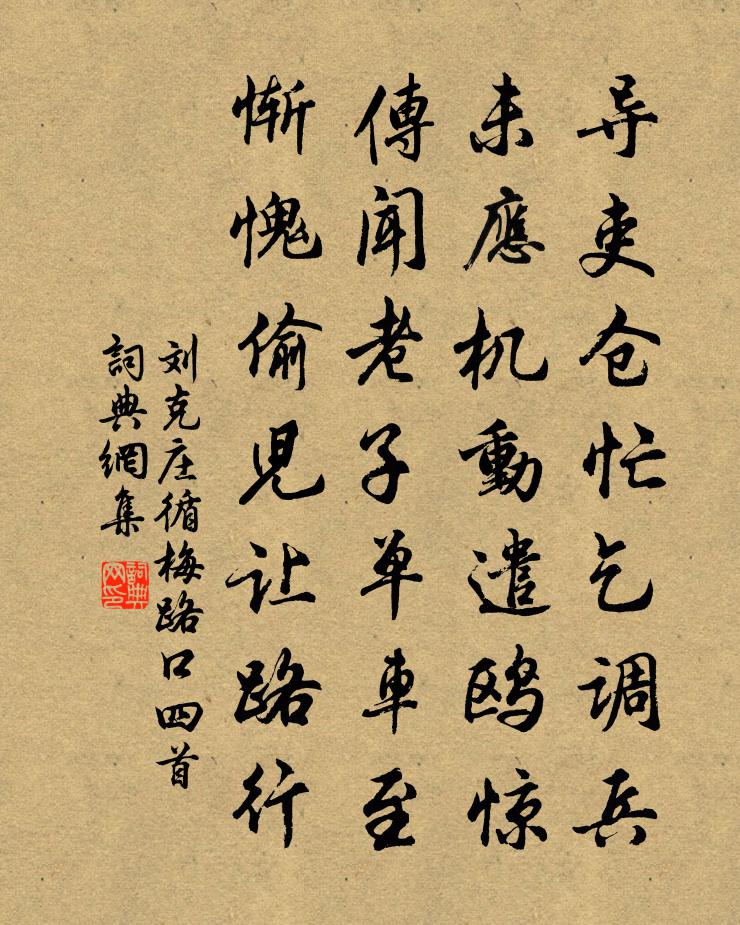 导吏仓忙乞调兵
未應机動遣鸥惊
傳闻老子单車至
惭愧偷児让路行
刘克庄循梅路口四首
詞典網集
詞典网印